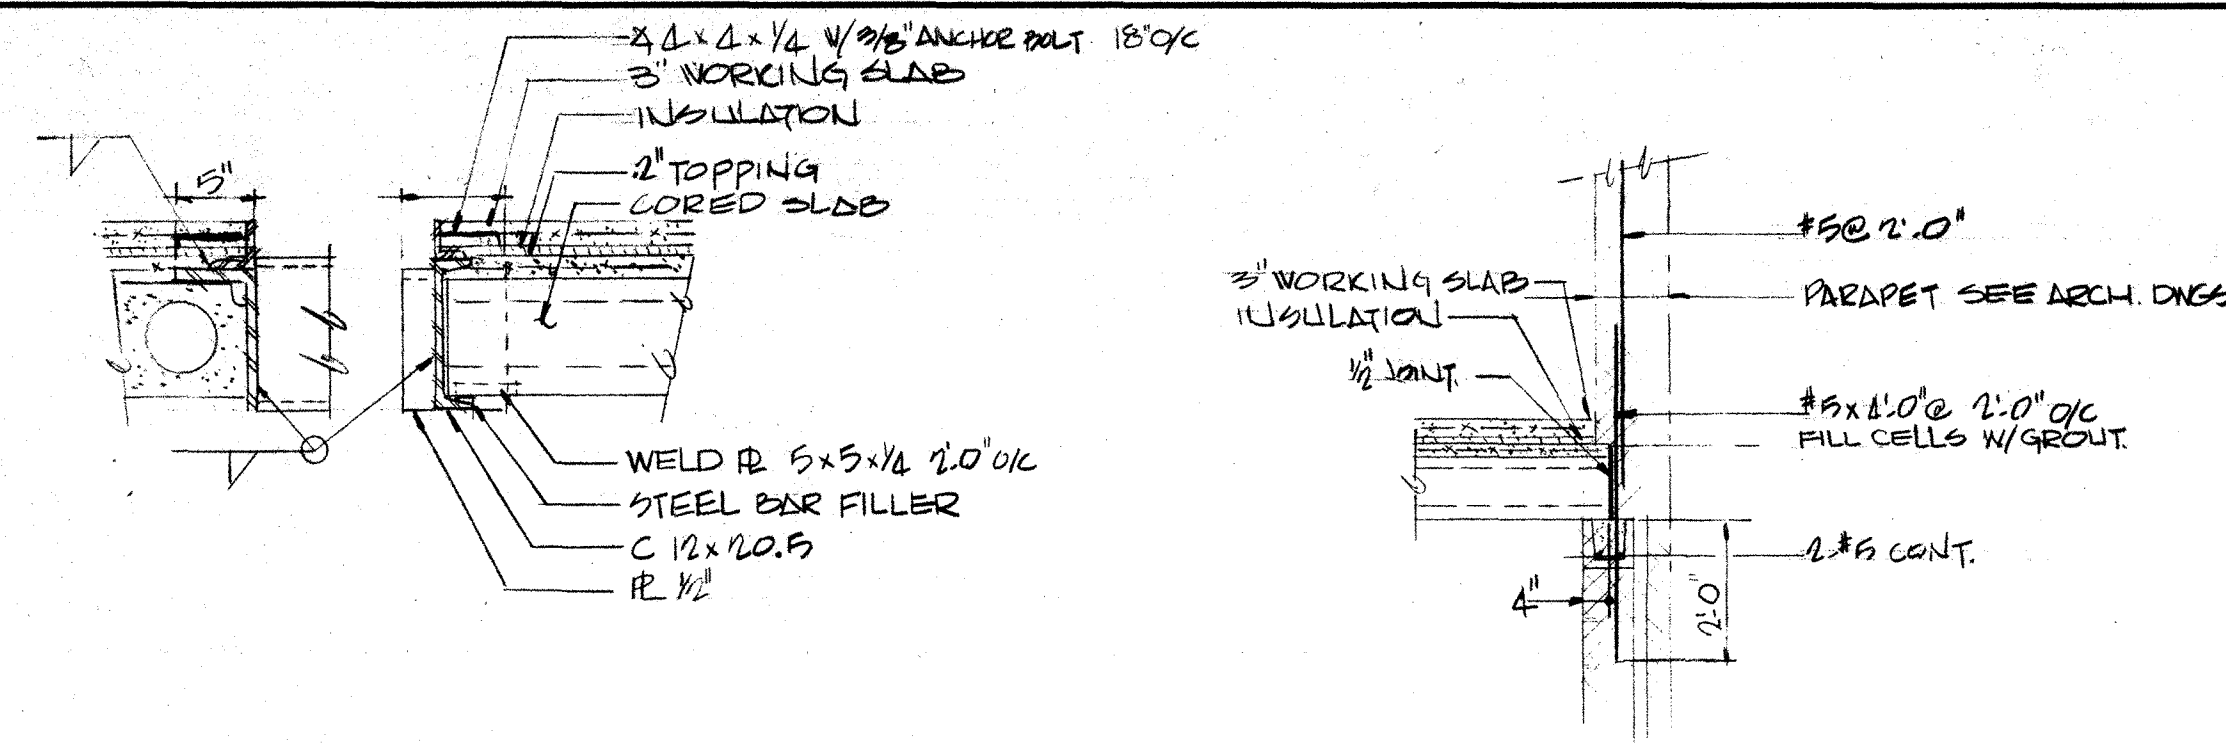 ∠ 4 x 4 x 1/4 W/ 3/8" ANCHOR BOLT 18" O/C
3" WORKING SLAB
INSULATION
2" TOPPING
CORED SLAB
5"
WELD PL 5 x 5 x 1/4 2'-0" O/C
STEEL BAR FILLER
C 12 x 20.5
PL 1/2"
#5 @ 2'-0"
3" WORKING SLAB
INSULATION
PARAPET SEE ARCH. DWGS
1/2" JOINT.
#5 x 4'-0" @ 2'-0" O/C
FILL CELLS W/ GROUT.
2-#5 CONT.
4"
2'-0"